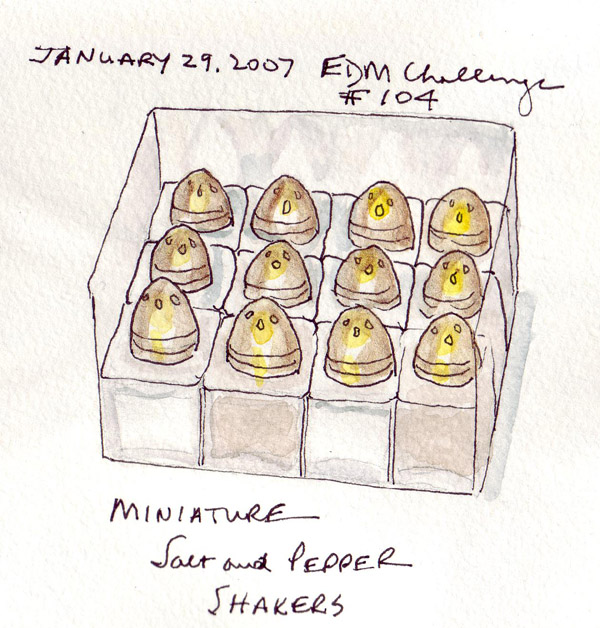 JANUARY 29, 2007 EDM Challenge
# 104
MINIATURE
Salt and PEPPER
SHAKERS